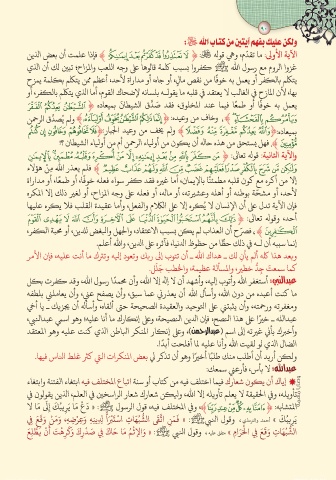 ولكن عليك بفهم آيتين من كتاب الله ﷻ:
الآية الأولى: ما تقدم؛ وهي قوله ﷻ: ﴿لَا تَعْتَذِرُوا قَدْ كَفَرْتُم بَعْدَ إِيمَانِكُمْ﴾ فإذا علمت أن بعض الذين
غزوا الروم مع رسول الله ﷺ كفروا بسبب كلمة قالوها على وجه اللعب والمزاح؛ تبين لك أن الذي
يتكلم بالكفر أو يعمل به خوفًا من نقص مال، أو جاه، أو مداراة لأحد؛ أعظم ممن يتكلم بكلمة يمزح
بها؛ لأن المازح في الغالب لا يعتقد في قلبه ما يقوله بلسانه لإضحاك القوم، أما الذي يتكلم بالكفر، أو
يعمل به خوفًا أو طمعًا فيما عند المخلوق؛ فقد صدّق الشيطان بميعاده ﴿الشَّيْطَانُ يَعِدُكُمُ الْفَقْرَ
وَيَأْمُرُكُم بِالْفَحْشَاءِ﴾، وخاف من وعيده: ﴿إِنَّمَا ذَٰلِكُمُ الشَّيْطَانُ يُخَوِّفُ أَوْلِيَاءَهُ﴾، ولم يصدق الرحمن
بميعاده: ﴿وَاللَّهُ يَعِدُكُم مَّغْفِرَةً مِّنْهُ وَفَضْلًا﴾ ولم يخف من وعيد الجبار: ﴿فَلَا تَخَافُوهُمْ وَخَافُونِ إِن كُنتُم
مُّؤْمِنِينَ﴾، فهل يستحق من هذه حاله أن يكون من أولياء الرحمن أم من أولياء الشيطان؟!
والآية الثانية: قوله تعالى: ﴿مَن كَفَرَ بِاللَّهِ مِن بَعْدِ إِيمَانِهِ إِلَّا مَنْ أُكْرِهَ وَقَلْبُهُ مُطْمَئِنٌّ بِالْإِيمَانِ
وَلَٰكِن مَّن شَرَحَ بِالْكُفْرِ صَدْرًا فَعَلَيْهِمْ غَضَبٌ مِّنَ اللَّهِ وَلَهُمْ عَذَابٌ عَظِيمٌ﴾ فلم يعذر الله من هؤلاء
إلا من أكره مع كون قلبه مطمئنًا بالإيمان؛ أما غيره فقد كفر سواء فعله خوفًا، أو طمعًا، أو مداراة
لأحد، أو مشحّة بوطنه أو أهله وعشيرته، أو ماله، أو فعله على وجه المزاح، أو لغير ذلك إلا المكره
فإن الآية تدل على أن الإنسان لا يُكره إلا على الكلام والفعل، وأما عقيدة القلب فلا يكره عليها
أحد، وقوله تعالى: ﴿ذَٰلِكَ بِأَنَّهُمُ اسْتَحَبُّوا الْحَيَاةَ الدُّنْيَا عَلَى الْآخِرَةِ وَأَنَّ اللَّهَ لَا يَهْدِي الْقَوْمَ
الْكَافِرِينَ﴾، فصرّح أن العذاب لم يكن بسبب الاعتقاد، والجهل، والبغض للدين، أو محبة الكفر،
إنما سببه أن له في ذلك حظًا من حظوظ الدنيا، فآثره على الدين، والله أعلم.
وبعد هذا كله ألم يأن لك ـ هداك الله ـ أن تتوب إلى ربك وتعود إليه وتترك ما أنت عليه، فإن الأمر
كما سمعت جدُّ خطير، والمسألة عظيمة، والخطب جَلَل.
عبدالنبي: أستغفر الله وأتوب إليه، وأشهد أن لا إله إلا الله، وأن محمدًا رسول الله، وقد كفرت بكل
ما كنت أعبده من دون الله، وأسأل الله أن يعذرني عما سبق، وأن يصفح عني، وأن يعاملني بلطفه
ومغفرته ورحمته، وأن يثبتني على التوحيد والعقيدة الصحيحة حتى ألقاه، وأسأله أن يجزيك ـ يا أخي
عبدالله ـ خيرًا على هذا النصح، فإن الدين النصيحة، وعلى إنكارك ما أنا عليه؛ وهو اسمي عبدالنبي،
وأخبرك بأني غيرته إلى اسم (عبدالرحمن)، وعلى إنكار المنكر الباطن الذي كنت عليه وهو المعتقد
الضال الذي لو لقيت الله وأنا عليه ما أفلحت أبدًا.
ولكن أريد أن أطلب منك طلبًا أخيرًا وهو أن تذكر لي بعض المنكرات التي كثر غلط الناس فيها.
عبدالله: لا بأس، فأرعني سمعك:
إياك أن يكون شعارك فيما اختلف فيه من كتاب أو سنة اتباع المختلف فيه ابتغاء الفتنة وابتغاء
تأويله، وفي الحقيقة لا يعلم تأويله إلا الله، وليكن شعارك شعار الراسخين في العلم الذين يقولون في
المتشابه: ﴿آمَنَّا بِهِ كُلٌّ مِّنْ عِندِ رَبِّنَا﴾، وفي المختلف فيه؛ قول الرسول ﷺ: « دَعْ مَا يَرِيبُكَ إِلَى مَا لَا
يَرِيبُكَ » وقول النبي ﷺ: « فَمَنِ اتَّقَى الشُّبُهَاتِ اسْتَبْرَأَ لِدِينِهِ وَعِرْضِهِ، وَمَنْ وَقَعَ فِي
الشُّبُهَاتِ وَقَعَ فِي الْحَرَامِ » وقول النبي ﷺ: « وَالإِثْمُ مَا حَاكَ فِي صَدْرِكَ وَكَرِهْتَ أَنْ يَطَّلِعَ